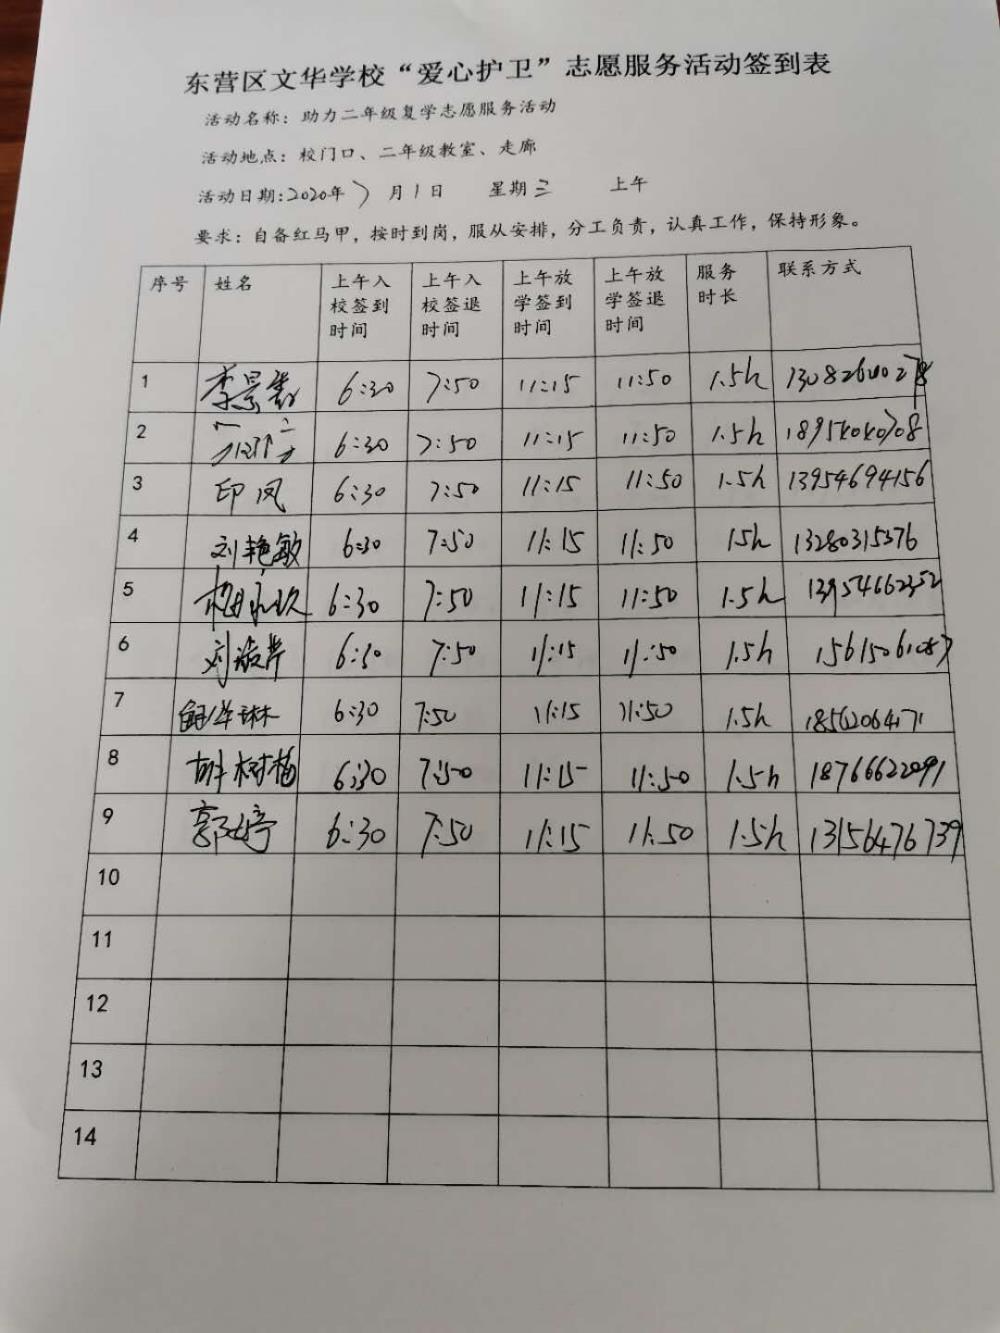 东营区文华学校“爱心护卫”志愿服务活动签到表
活动名称：助力二年级复学志愿服务活动
活动地点：校门口、二年级教室、走廊
活动日期:2020年7月1日 星期三 上午
要求：自备红马甲，按时到岗，服从安排，分工负责，认真工作，保持形象。
序号 姓名 上午入校签到时间 上午入校签退时间 上午放学签到时间 上午放学签退时间 服务时长 联系方式
1 李景 6:30 7:50 11:15 11:50 1.5h
2 6:30 7:50 11:15 11:50 1.5h
3 印凤 6:30 7:50 11:15 11:50 1.5h 13954694156
4 刘艳敏 6:30 7:50 11:15 11:50 1.5h 13280315376
5 6:30 7:50 11:15 11:50 1.5h 13954662352
6 刘 6:30 7:50 11:15 11:50 1.5h 15615061087
7 6:30 7:50 11:15 11:50 1.5h 18562064171
8 胡树梅 6:30 7:50 11:15 11:50 1.5h 18766622091
9 郭婷 6:30 7:50 11:15 11:50 1.5h 13156476739
10
11
12
13
14